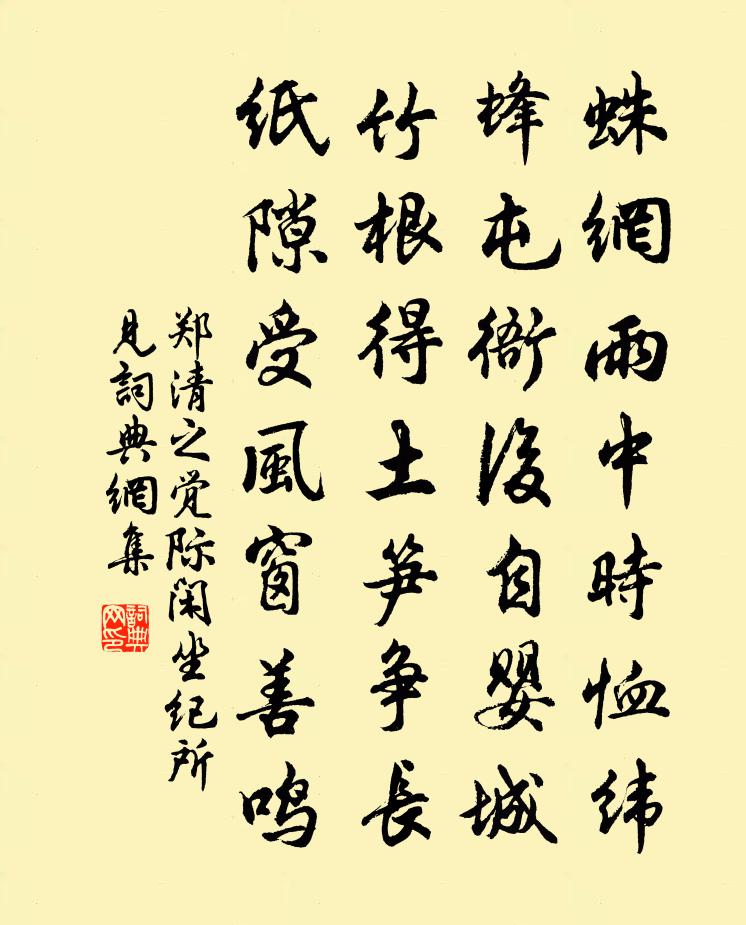 蛛網雨中時恤纬
蜂屯衙後自嬰城
竹根得土笋争長
紙隙受風窗善鳴
郑清之覚际闲坐纪所
見詞典網集
詞典网印